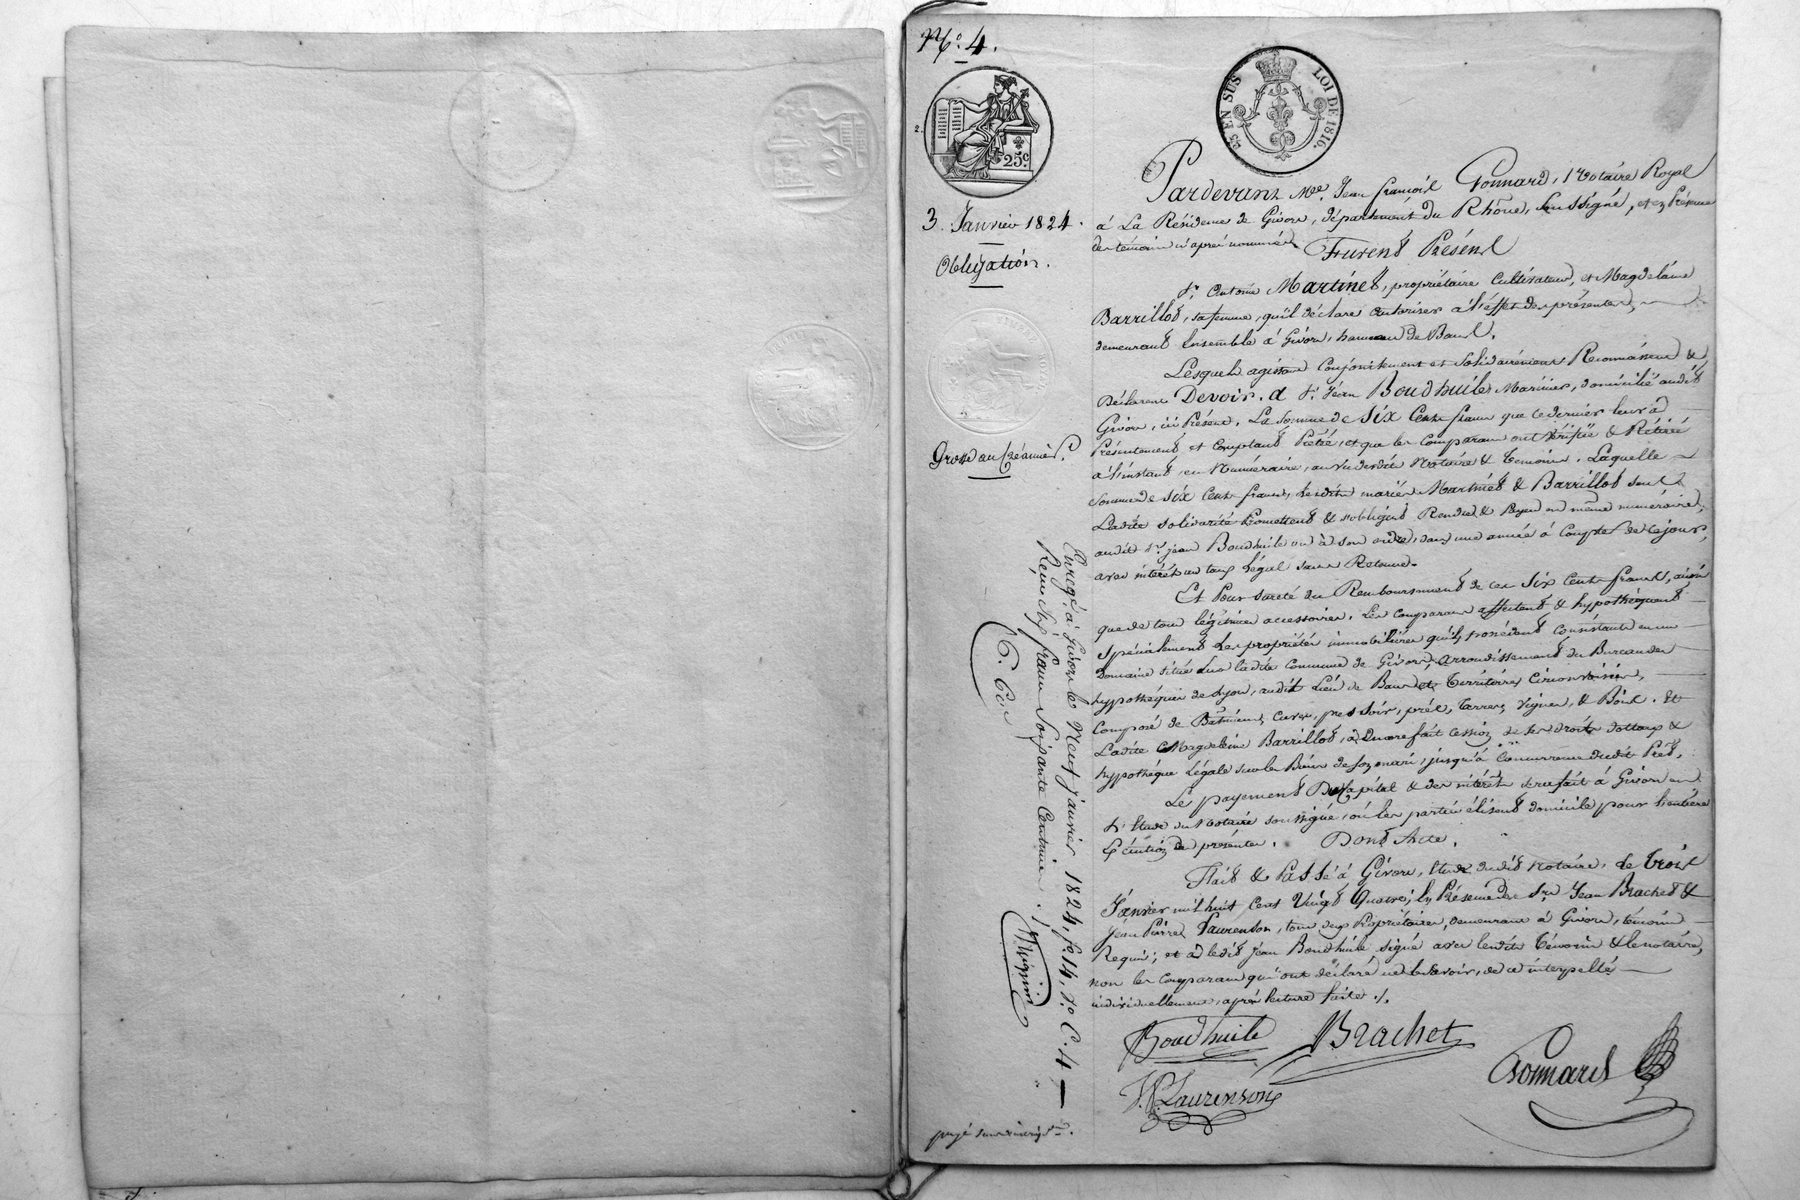 No. 4.
25 EN SUS
LOI DE 1816.
2.
25c.
3. Janvier 1824.
Obligation.
Grosse au Créancier.
Pardevant Mre. Jean françois Gonnard, Notaire Royal
à La Résidence de Givors, département du Rhône, soussigné, et en Présence
des témoins ci après nommés,
Furent Présens
Sr. Antoine Martinet, propriétaire Cultivateur, et Magdelaine
Barrillot, sa femme, qu'il déclare autoriser à l'effet des présentes,
demeurant Ensemble à Givors, hameau de Bans.
Lesquels agissant Conjointement et Solidairement Reconnaissent &
Déclarent Devoir, à Sr. Jean Boudhuile Marinier, domicilié audit
Givors, ici Présent, La Somme de Six Cents francs que ce dernier leur a
Présentement et Comptant Prêté, et que les Comparans ont Vérifié & Retiré
à l'instant, en Numéraire, au vu desdits Notaire & témoins. Laquelle
Somme de Six Cents francs, lesdits mariés Martinet & Barrillot sous
Ladite solidarité Promettent & s'obligent Rendre & Payer en même numéraire,
audit Sr. Jean Boudhuile ou à son ordre, dans une année à Compter de Ce jour,
avec intérêt au taux Légal sans Retenue.
Et Pour sureté du Remboursement de ces Six Cents francs, ainsi
que de tous légitimes accessoires, Les Comparans affectent & hypothèquent
Spécialement les propriétés immobilières qu'ils possèdent Consistante en un
Domaine situé sur ladite Commune de Givors, arrondissement du Bureau des
hypothèques de Lyon, audit Lieu de Bans et Territoires Circonvoisins,
Composé de Bâtimens, Cuves, pressoir, prés, Terres, Vignes, & Bois. Et
Ladite Magdeleine Barrillot, a Encore fait Cession de ses droits dottaux &
hypothèque Légale sur les Biens de son mari, jusqu'à Concurrence dudit Prêt.
Le payement Du Capital & des intérêts sera fait à Givors en
L'Etude du Notaire soussigné, où les parties élisent domicile pour l'entière
Exécution des présentes. Dont Acte.
Fait & Passé à Givors, Etude dudit Notaire, Le Trois
Janvier mil huit Cent Vingt Quatre, En Présence des Srs. Jean Brachet &
Jean Pierre Laurenson, tous deux Propriétaires, demeurant à Givors, témoins
Requis; et a ledit Jean Boudhuile signé avec lesdits Témoins & le notaire,
non les Comparans qui ont déclaré ne le Savoir, de ce interpellés
individuellement, après lecture faite ./.
Boudhuile
Brachet
J. P. Laurenson
Gonnard
Enregé. à Givors le Neuf janvier 1824, fo. 14, Vo. C. 4
Reçu Six francs Soixante Centimes.